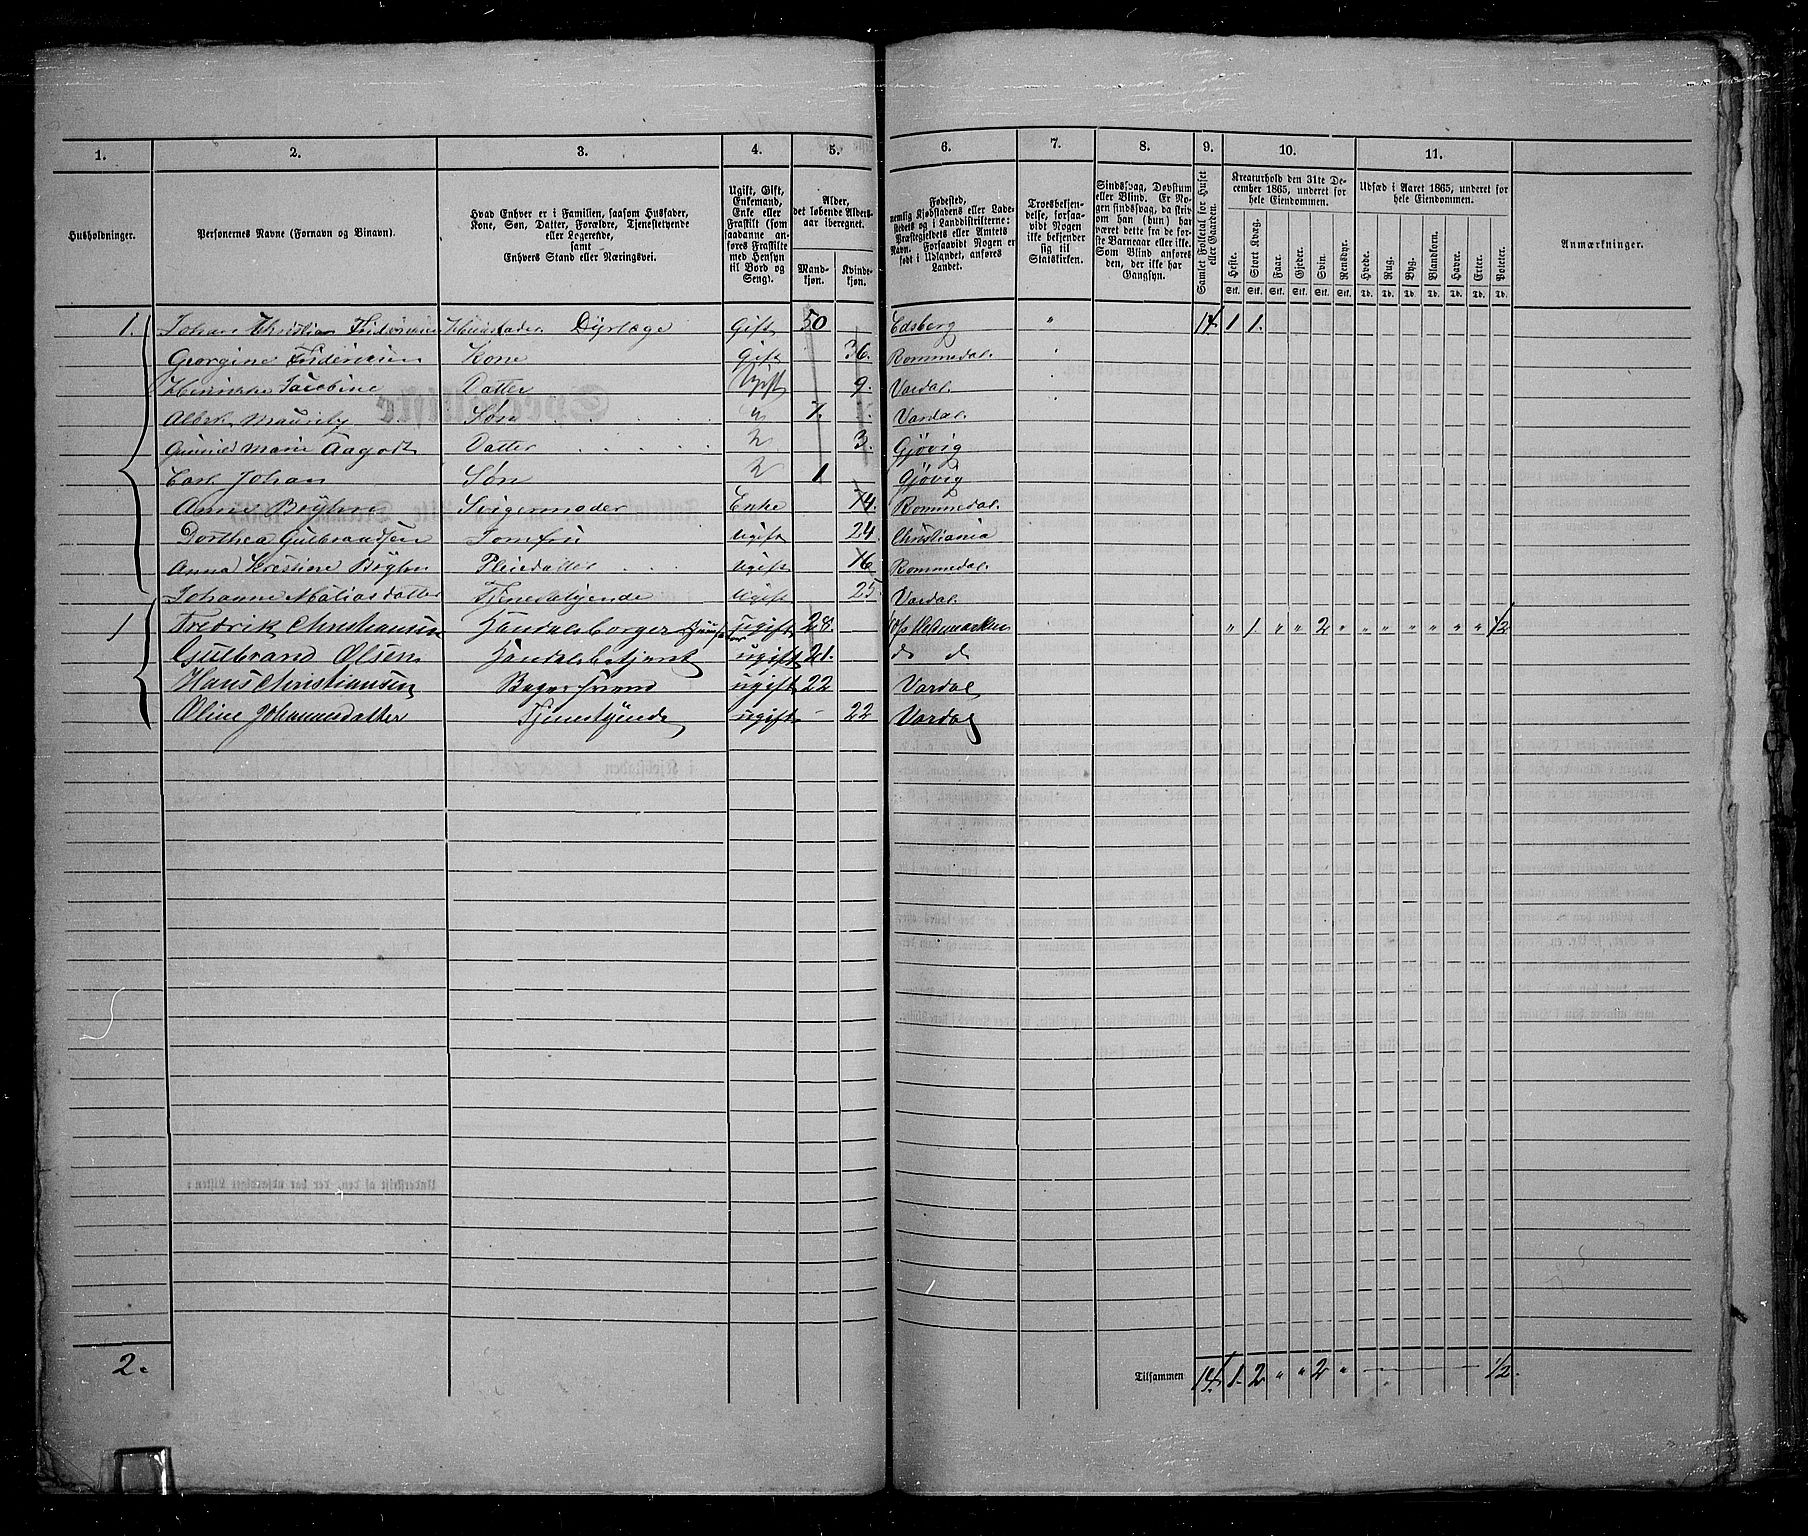 1. 2. 3. 4. 5. 6. 7. 8. 9. 10. 11.
Husholdninger.
Personernes Navne (Fornavn og Binavn).
Hvad Enhver er i Familien, saasom Husfader,
Kone, Søn, Datter, Forældre, Tjenestetyende
eller Logerende,
samt
Enhvers Stand eller Næringsvei.
Ugift, Gift,
Enkemand,
Enke eller
Fraskilt (som
saadanne an-
føres Fraskilte
med Hensyn
til Bord og
Seng).
Alder,
det løbende Alders-
aar iberegnet.
Mand-
kjøn.
Kvinde-
kjøn.
Fødested,
nemlig Kjøbstadens eller Lade-
stedets og i Landdistrikterne:
Præstegjeldets eller Amtets
Navn. Forsaavidt Nogen er
født i Udlandet, anføres
Landet.
Troesbekjen-
delse, forsaa-
vidt Nogen
ikke bekjender
sig til
Statskirken.
Sindssvag, Døvstum
eller Blind. Er No-
gen sindssvag, da skriv
om han (hun) har
været dette fra de før-
ste Barneaar eller ikke.
Som Blind anføres
den, der ikke har
Gangsyn.
Samlet Folketal for Huset
eller Gaarden.
Kreaturhold den 31te De-
cember 1865, underet for
hele Eiendommen.
Heste. Stort Kvæg. Faar. Gjeder. Svin. Rensdyr.
Stk. Stk. Stk. Stk. Stk. Stk.
Udsæd i Aaret 1865, underet for
hele Eiendommen.
Hvede. Rug. Byg. Blandkorn. Havre. Erter. Poteter.
Td. Td. Td. Td. Td. Td. Td.
Anmærkninger.
1. Johan Christian Husfader Dyrlæge Gift 50 Edsberg " 14 1 1.
Georgine Kone Gift 36. Rommedal.
Jacobine Datter Ugift 9. Vardal.
Albert Søn " 7. Vardal.
Marie Aagot Datter 3. Gjövig
Carl Johan Søn 1 Gjövig
Anne Svigermoder Enke 74. Rommedal.
Dorthea Gulbrandsen Jomfru Ugift 24. Christiania
Anna Kristine Pleiedatter Ugift 16 Rommedal.
Johanne Mathiasdatter Tjenestetyende Ugift 25 Vardal.
1 Fredrik Christiansen Handelsborger ugift 28. Hedemarken " 1. " " 2 " " " " " " " 1/2
Gulbrand Olsen Handelsbetjent ugift 21. d d
Hans Christiansen Bagersvend ugift 22 Vardal
Oline Johannesdatter Tjenestyende ugift - 22 Vardal
2. Tilsammen 14. 1. 2 " " 2 " 1/2.